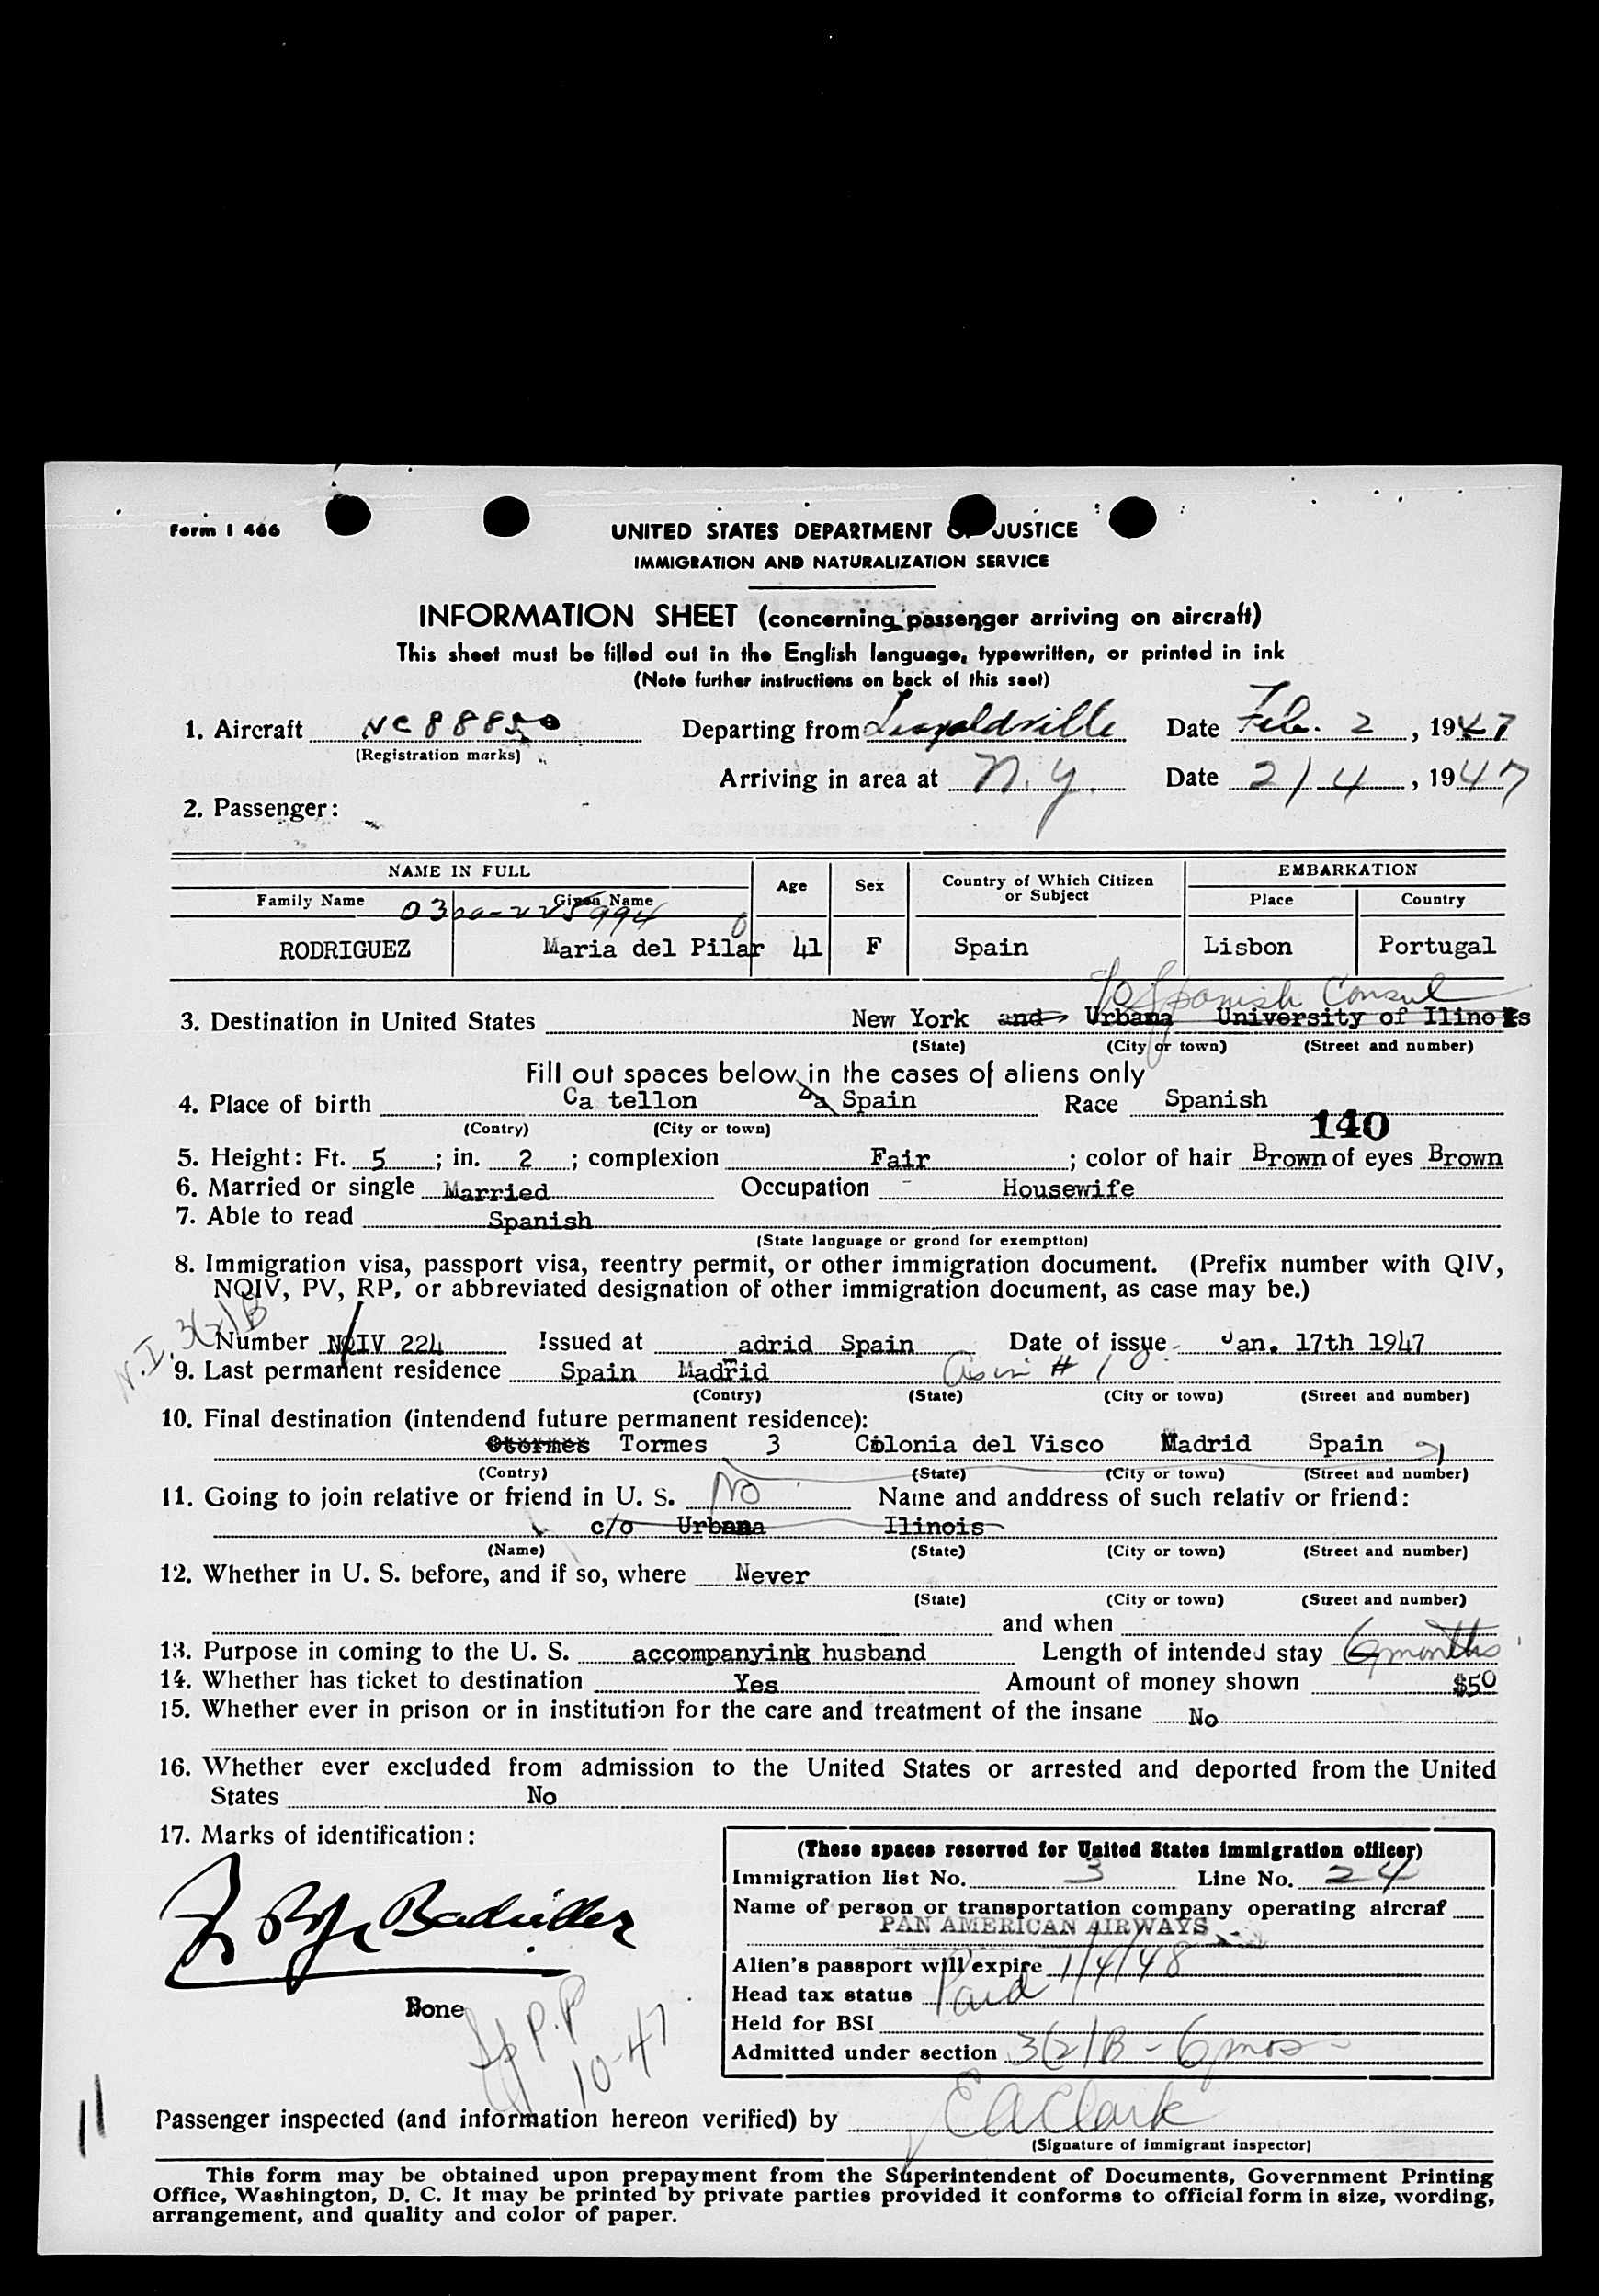 Form I 466
UNITED STATES DEPARTMENT OF JUSTICE
IMMIGRATION AND NATURALIZATION SERVICE
INFORMATION SHEET (concerning passenger arriving on aircraft)
This sheet must be filled out in the English language, typewritten, or printed in ink
(Note further instructions on back of this seet)
1. Aircraft NC 88850 Departing from Leopoldville Date Feb. 2, 1947
(Registration marks)
Arriving in area at N.Y. Date 2/4, 1947
2. Passenger:
NAME IN FULL Age Sex Country of Which Citizen or Subject EMBARKATION
Family Name Given Name Place Country
0300-225994
RODRIGUEZ Maria del Pilar 41 F Spain Lisbon Portugal
% Spanish Consul
3. Destination in United States New York and Urbana University of Ilinois
(State) (City or town) (Street and number)
Fill out spaces below in the cases of aliens only
4. Place of birth Ca tellon Spain Race Spanish
(Contry) (City or town)
140
5. Height: Ft. 5; in. 2; complexion Fair; color of hair Brown of eyes Brown
6. Married or single Married Occupation Housewife
7. Able to read Spanish
(State language or grond for exemption)
8. Immigration visa, passport visa, reentry permit, or other immigration document. (Prefix number with QIV,
NQIV, PV, RP, or abbreviated designation of other immigration document, as case may be.)
N.I. 3(2)B
Number NQIV 224 Issued at adrid Spain Date of issue Jan. 17th 1947
9. Last permanent residence Spain Madrid
(Contry) (State) (City or town) (Street and number)
10. Final destination (intendend future permanent residence):
Otormes Tormes 3 Colonia del Visco Madrid Spain
(Contry) (State) (City or town) (Street and number)
11. Going to join relative or friend in U. S. No Name and anddress of such relativ or friend:
c/o Urbana Ilinois
(Name) (State) (City or town) (Street and number)
12. Whether in U. S. before, and if so, where Never
(State) (City or town) (Street and number)
and when
13. Purpose in coming to the U. S. accompanying husband Length of intended stay 6 months
14. Whether has ticket to destination Yes Amount of money shown $50
15. Whether ever in prison or in institution for the care and treatment of the insane No
16. Whether ever excluded from admission to the United States or arrested and deported from the United
States No
17. Marks of identification:
None
P.P
10-47
(These spaces reserved for United States immigration officer)
Immigration list No. 3 Line No. 24
Name of person or transportation company operating aircraf
PAN AMERICAN AIRWAYS
Alien's passport will expire 1/4/48
Head tax status Paid
Held for BSI
Admitted under section 3(2)B - 6 mos
11
Passenger inspected (and information hereon verified) by E A Clark
(Signature of immigrant inspector)
This form may be obtained upon prepayment from the Superintendent of Documents, Government Printing
Office, Washington, D. C. It may be printed by private parties provided it conforms to official form in size, wording,
arrangement, and quality and color of paper.